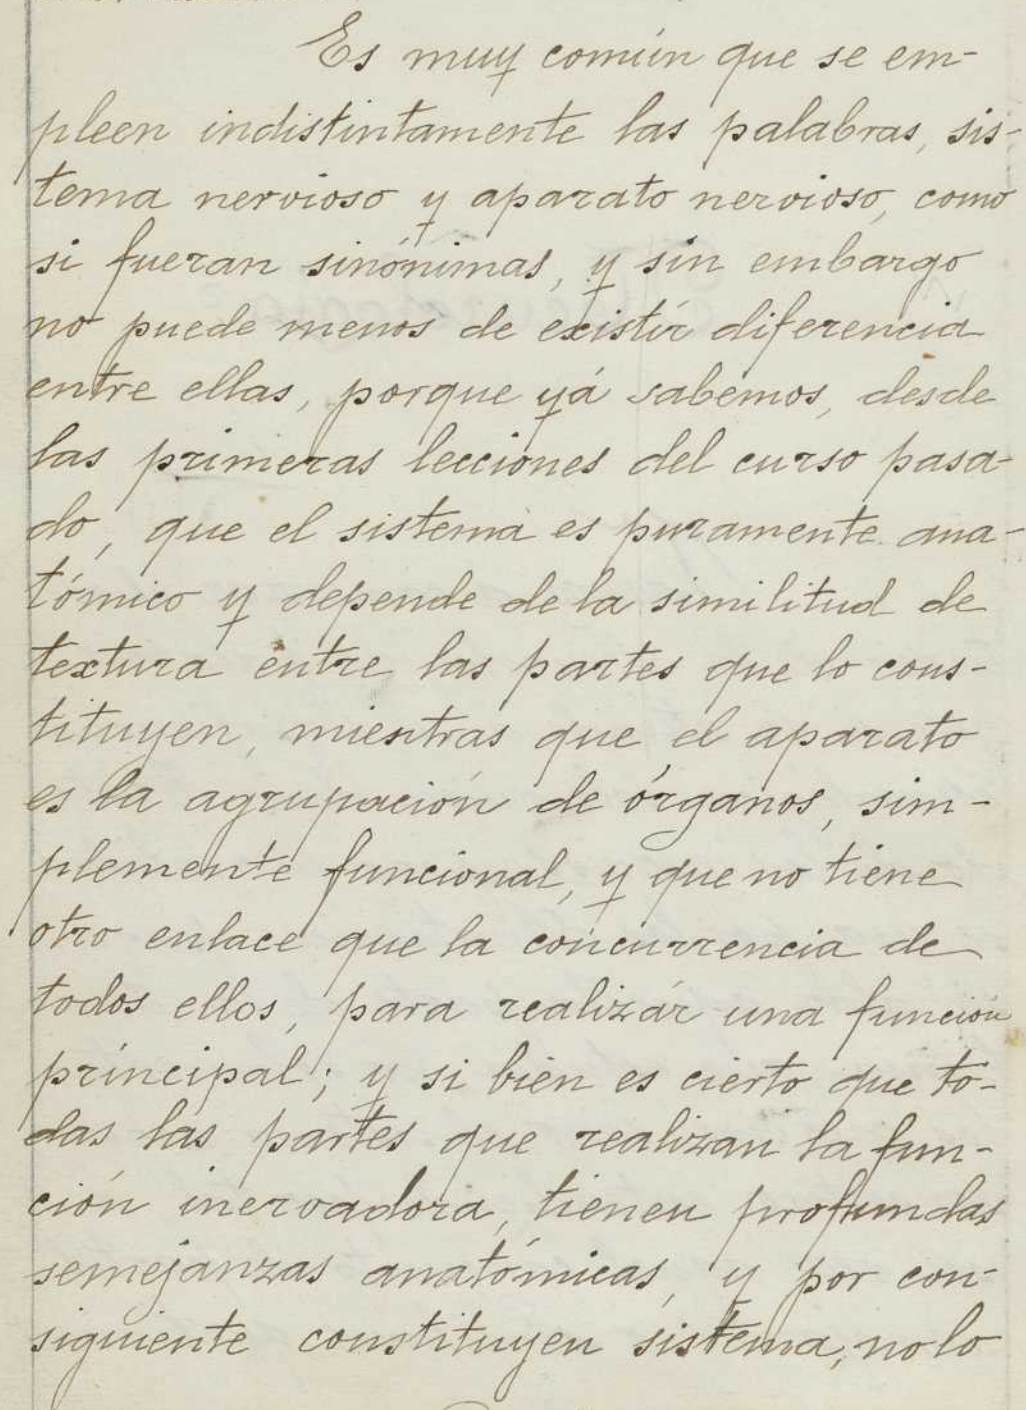 Es muy común que se em-
pleen indistintamente las palabras, sis-
tema nervioso y aparato nervioso, como
si fueran sinónimas, y sin embargo
no puede menos de existir diferencia
entre ellas, porque yá sabemos, desde
las primeras lecciones del curso pasa-
do, que el sistema es puramente ana-
tómico y depende de la similitud de
textura entre las partes que lo cons-
tituyen, mientras que el aparato
es la agrupación de órganos, sim-
plemente funcional, y que no tiene
otro enlace que la concurrencia de
todos ellos, para realizár una función
principal; y si bien es cierto que to-
das las partes que realizan la fun-
ción inervadora, tienen profundas
semejanzas anatómicas, y por con-
siguiente constituyen sistema, no lo